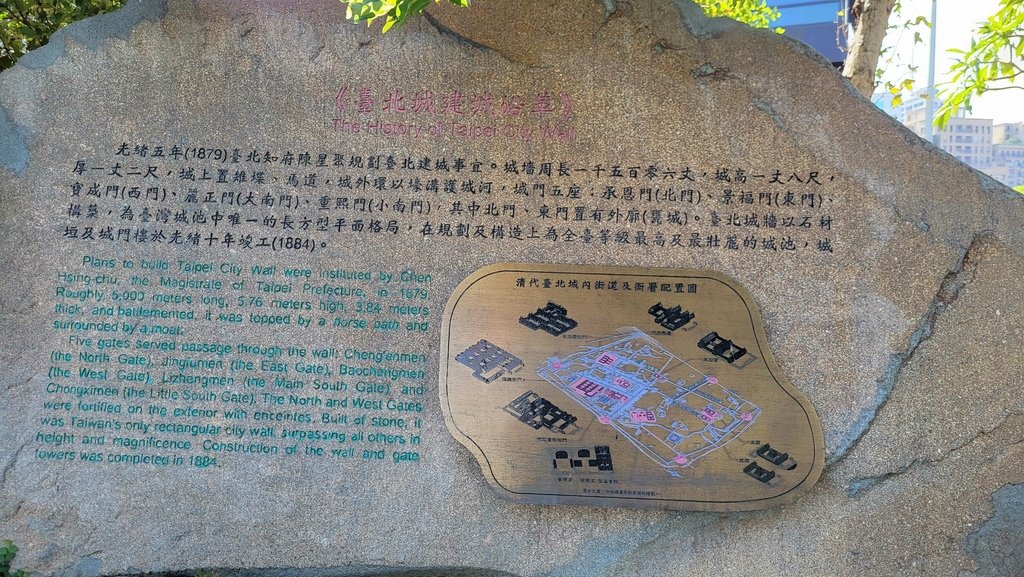 《臺北城建城沿革》
The History of Taipei City Wall
光緒五年(1879)臺北知府陳星聚規劃臺北建城事宜。城墻周長一千五百零六丈，城高一丈八尺，
厚一丈二尺，城上置雉堞、馬道，城外環以壕溝護城河，城門五座：承恩門(北門)、景福門(東門)、
寶成門(西門)、麗正門(大南門)、重熙門(小南門)，其中北門、東門置有外廓(甕城)。臺北城牆以石材
構築，為臺灣城池中唯一的長方型平面格局，在規劃及構造上為全臺等級最高及最壯麗的城池，城
垣及城門樓於光緒十年竣工(1884)。
Plans to build Taipei City Wall were instituted by Chen
Hsing-chu, the Magistrate of Taipei Prefecture, in 1879.
Roughly 5,000 meters long, 5.76 meters high, 3.84 meters
thick, and battlemented, it was topped by a horse path and
surrounded by a moat.
Five gates served passage through the wall: Cheng'enmen
(the North Gate), Jingfumen (the East Gate), Baochengmen
(the West Gate), Lizhengmen (the Main South Gate), and
Chongximen (the Little South Gate). The North and West Gates
were fortified on the exterior with enceintes. Built of stone, it
was Taiwan's only rectangular city wall, surpassing all others in
height and magnificence. Construction of the wall and gate
towers was completed in 1884.
清代臺北城內街道及衙署配置圖